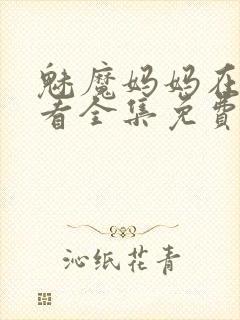 魅魔妈妈在
看全集免費
沁纸花青